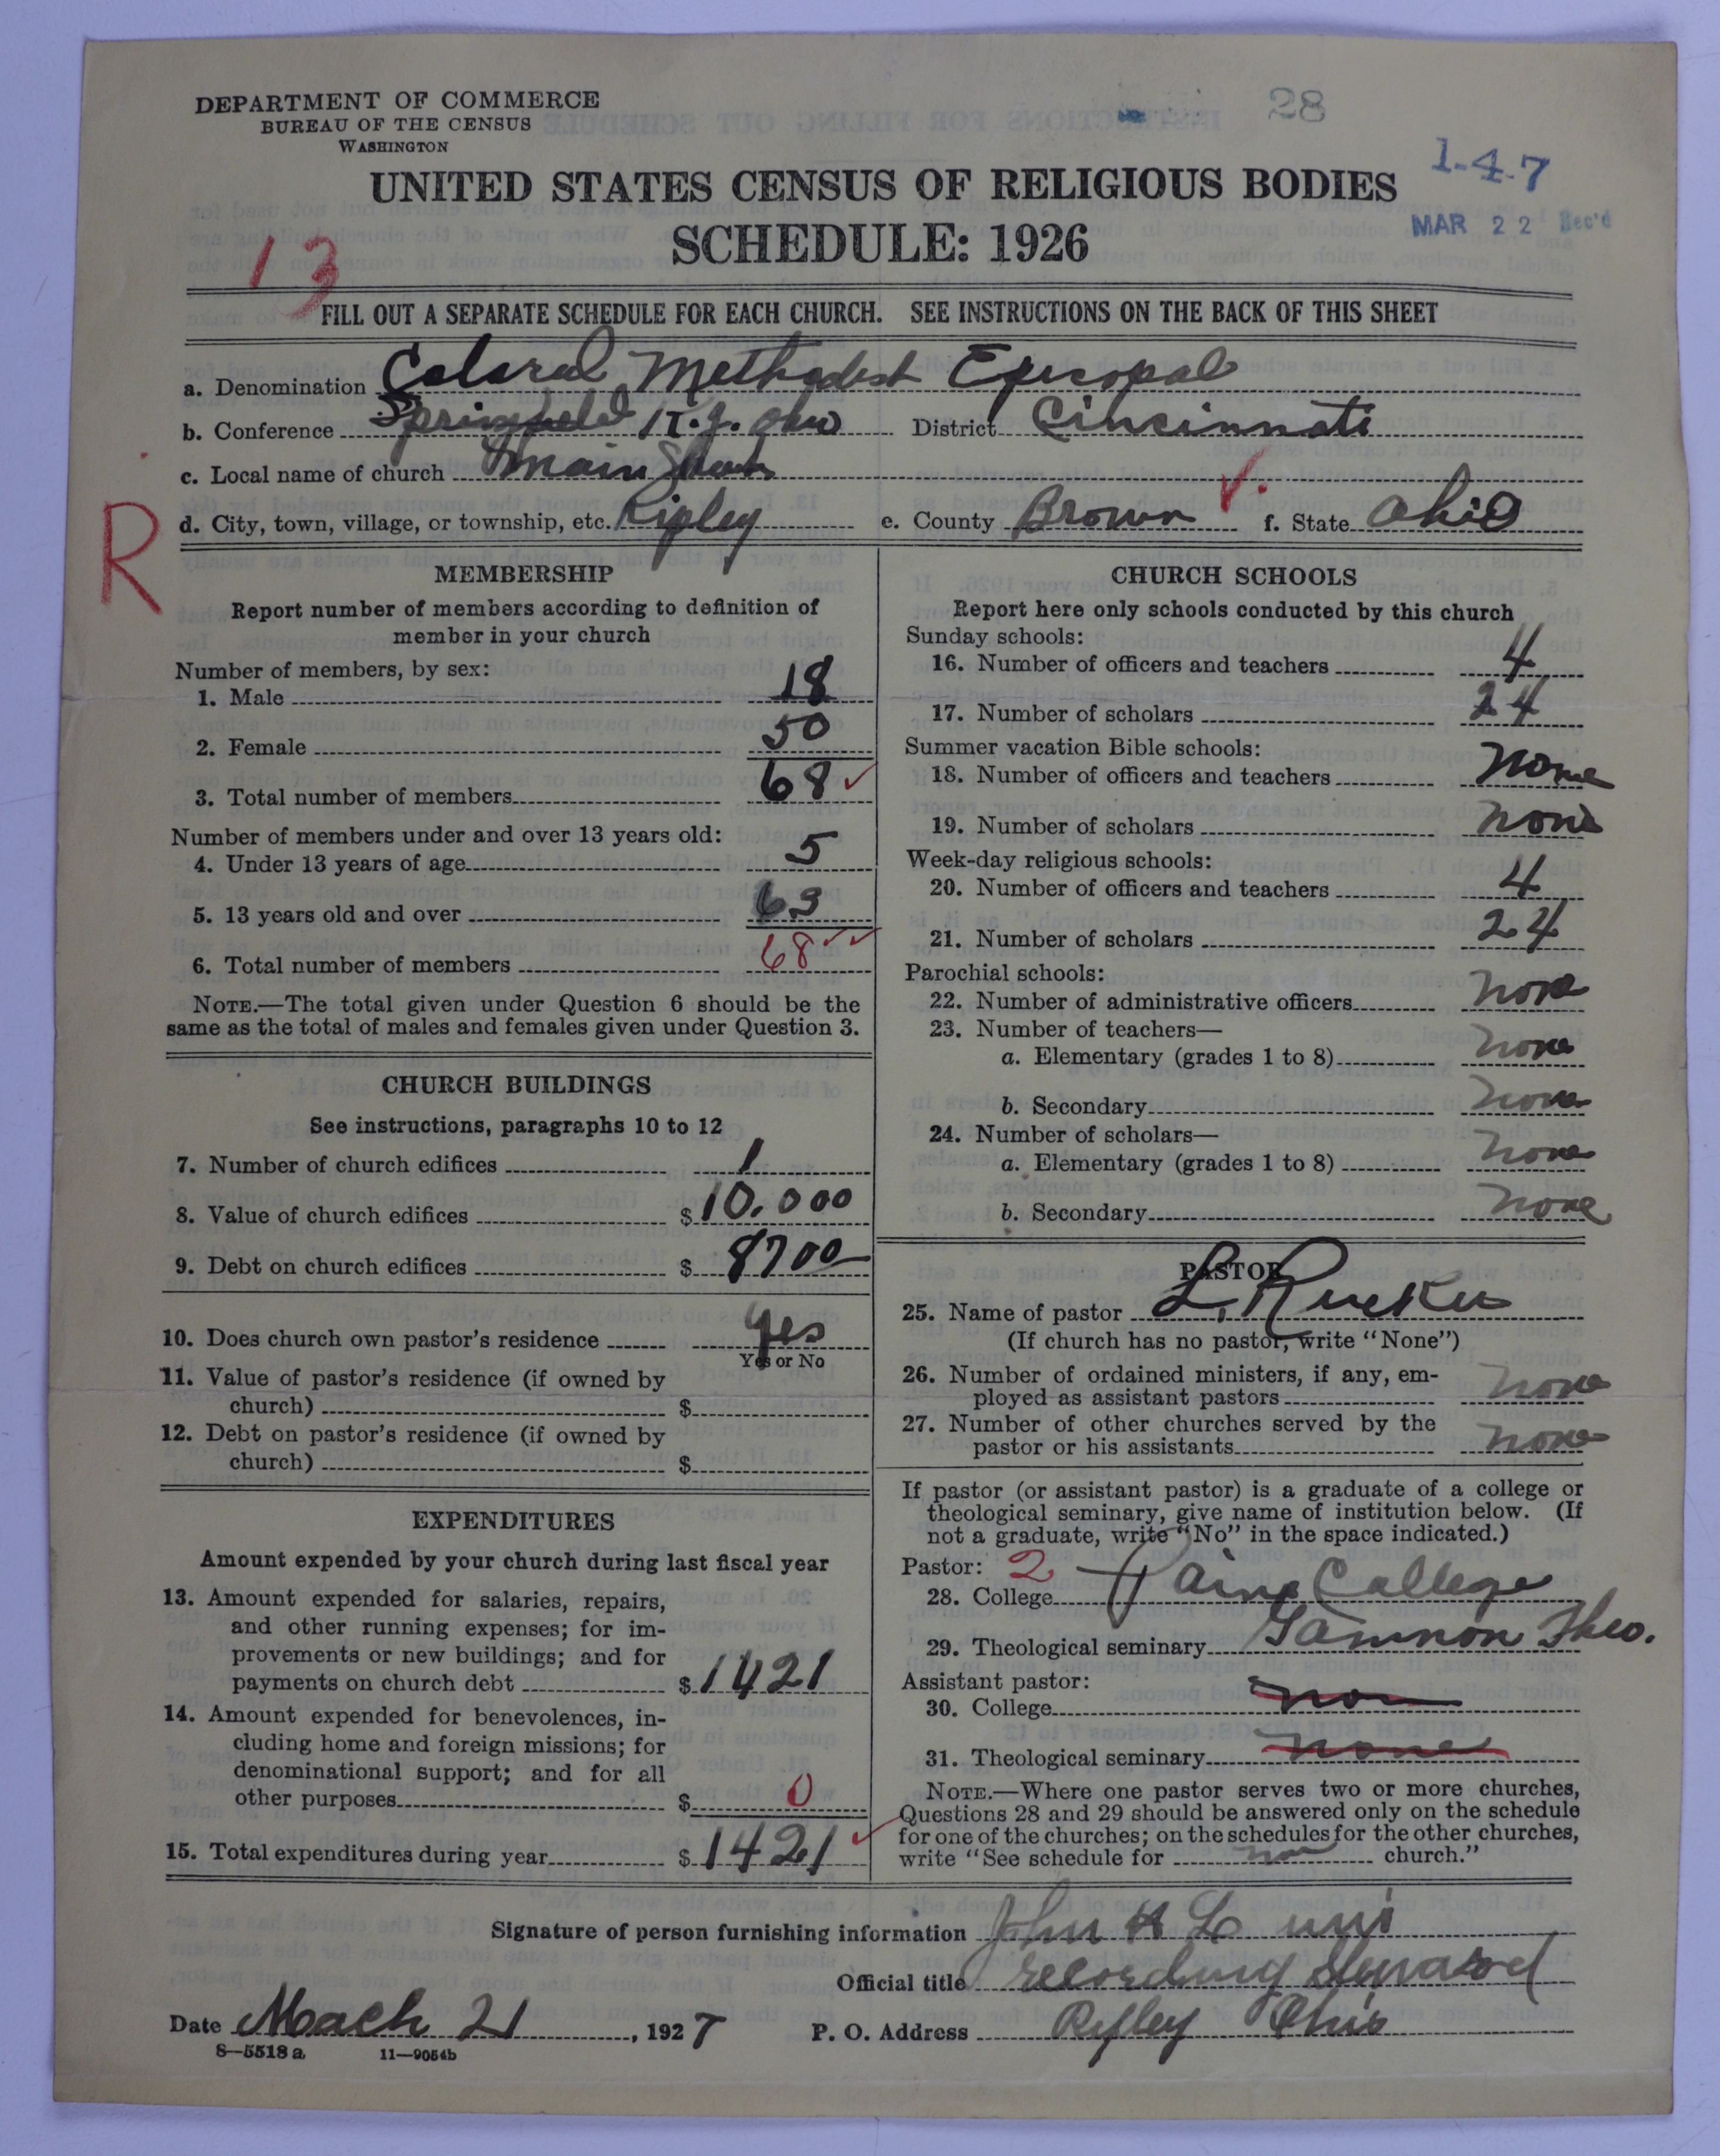 DEPARTMENT OF COMMERCE
BUREAU OF THE CENSUS
WASHINGTON
28
1-4-7
UNITED STATES CENSUS OF RELIGIOUS BODIES
SCHEDULE: 1926
MAR 22 Rec'd
13
FILL OUT A SEPARATE SCHEDULE FOR EACH CHURCH. SEE INSTRUCTIONS ON THE BACK OF THIS SHEET
a. Denomination Colored Methodist Episcopal
b. Conference Springfield Ohio District Cincinnati
c. Local name of church Main
d. City, town, village, or township, etc. Ripley e. County Brown f. State Ohio
R
MEMBERSHIP
Report number of members according to definition of
member in your church
Number of members, by sex:
1. Male 18
2. Female 50
3. Total number of members 68
Number of members under and over 13 years old:
4. Under 13 years of age 5
5. 13 years old and over 63
6. Total number of members 68
NOTE.—The total given under Question 6 should be the
same as the total of males and females given under Question 3.
CHURCH BUILDINGS
See instructions, paragraphs 10 to 12
7. Number of church edifices 1
8. Value of church edifices $10.000
9. Debt on church edifices $8700
10. Does church own pastor's residence yes
Yes or No
11. Value of pastor's residence (if owned by
church) $
12. Debt on pastor's residence (if owned by
church) $
EXPENDITURES
Amount expended by your church during last fiscal year
13. Amount expended for salaries, repairs,
and other running expenses; for im-
provements or new buildings; and for
payments on church debt $1421
14. Amount expended for benevolences, in-
cluding home and foreign missions; for
denominational support; and for all
other purposes $0
15. Total expenditures during year $1421
CHURCH SCHOOLS
Report here only schools conducted by this church
Sunday schools:
16. Number of officers and teachers 4
17. Number of scholars 24
Summer vacation Bible schools:
18. Number of officers and teachers None
19. Number of scholars none
Week-day religious schools:
20. Number of officers and teachers 4
21. Number of scholars 24
Parochial schools:
22. Number of administrative officers none
23. Number of teachers—
a. Elementary (grades 1 to 8) none
b. Secondary none
24. Number of scholars—
a. Elementary (grades 1 to 8) none
b. Secondary none
PASTOR
25. Name of pastor L. Rucker
(If church has no pastor, write "None")
26. Number of ordained ministers, if any, em-
ployed as assistant pastors none
27. Number of other churches served by the
pastor or his assistants none
If pastor (or assistant pastor) is a graduate of a college or
theological seminary, give name of institution below. (If
not a graduate, write "No" in the space indicated.)
Pastor: 2
28. College Paine College
29. Theological seminary Gammon Theo.
Assistant pastor:
30. College non
31. Theological seminary none
NOTE.—Where one pastor serves two or more churches,
Questions 28 and 29 should be answered only on the schedule
for one of the churches; on the schedules for the other churches,
write "See schedule for non church."
Signature of person furnishing information John H
Official title recording Steward
Date Mach 21, 1927 P. O. Address Ripley Ohio
8—5518 a 11—9054b